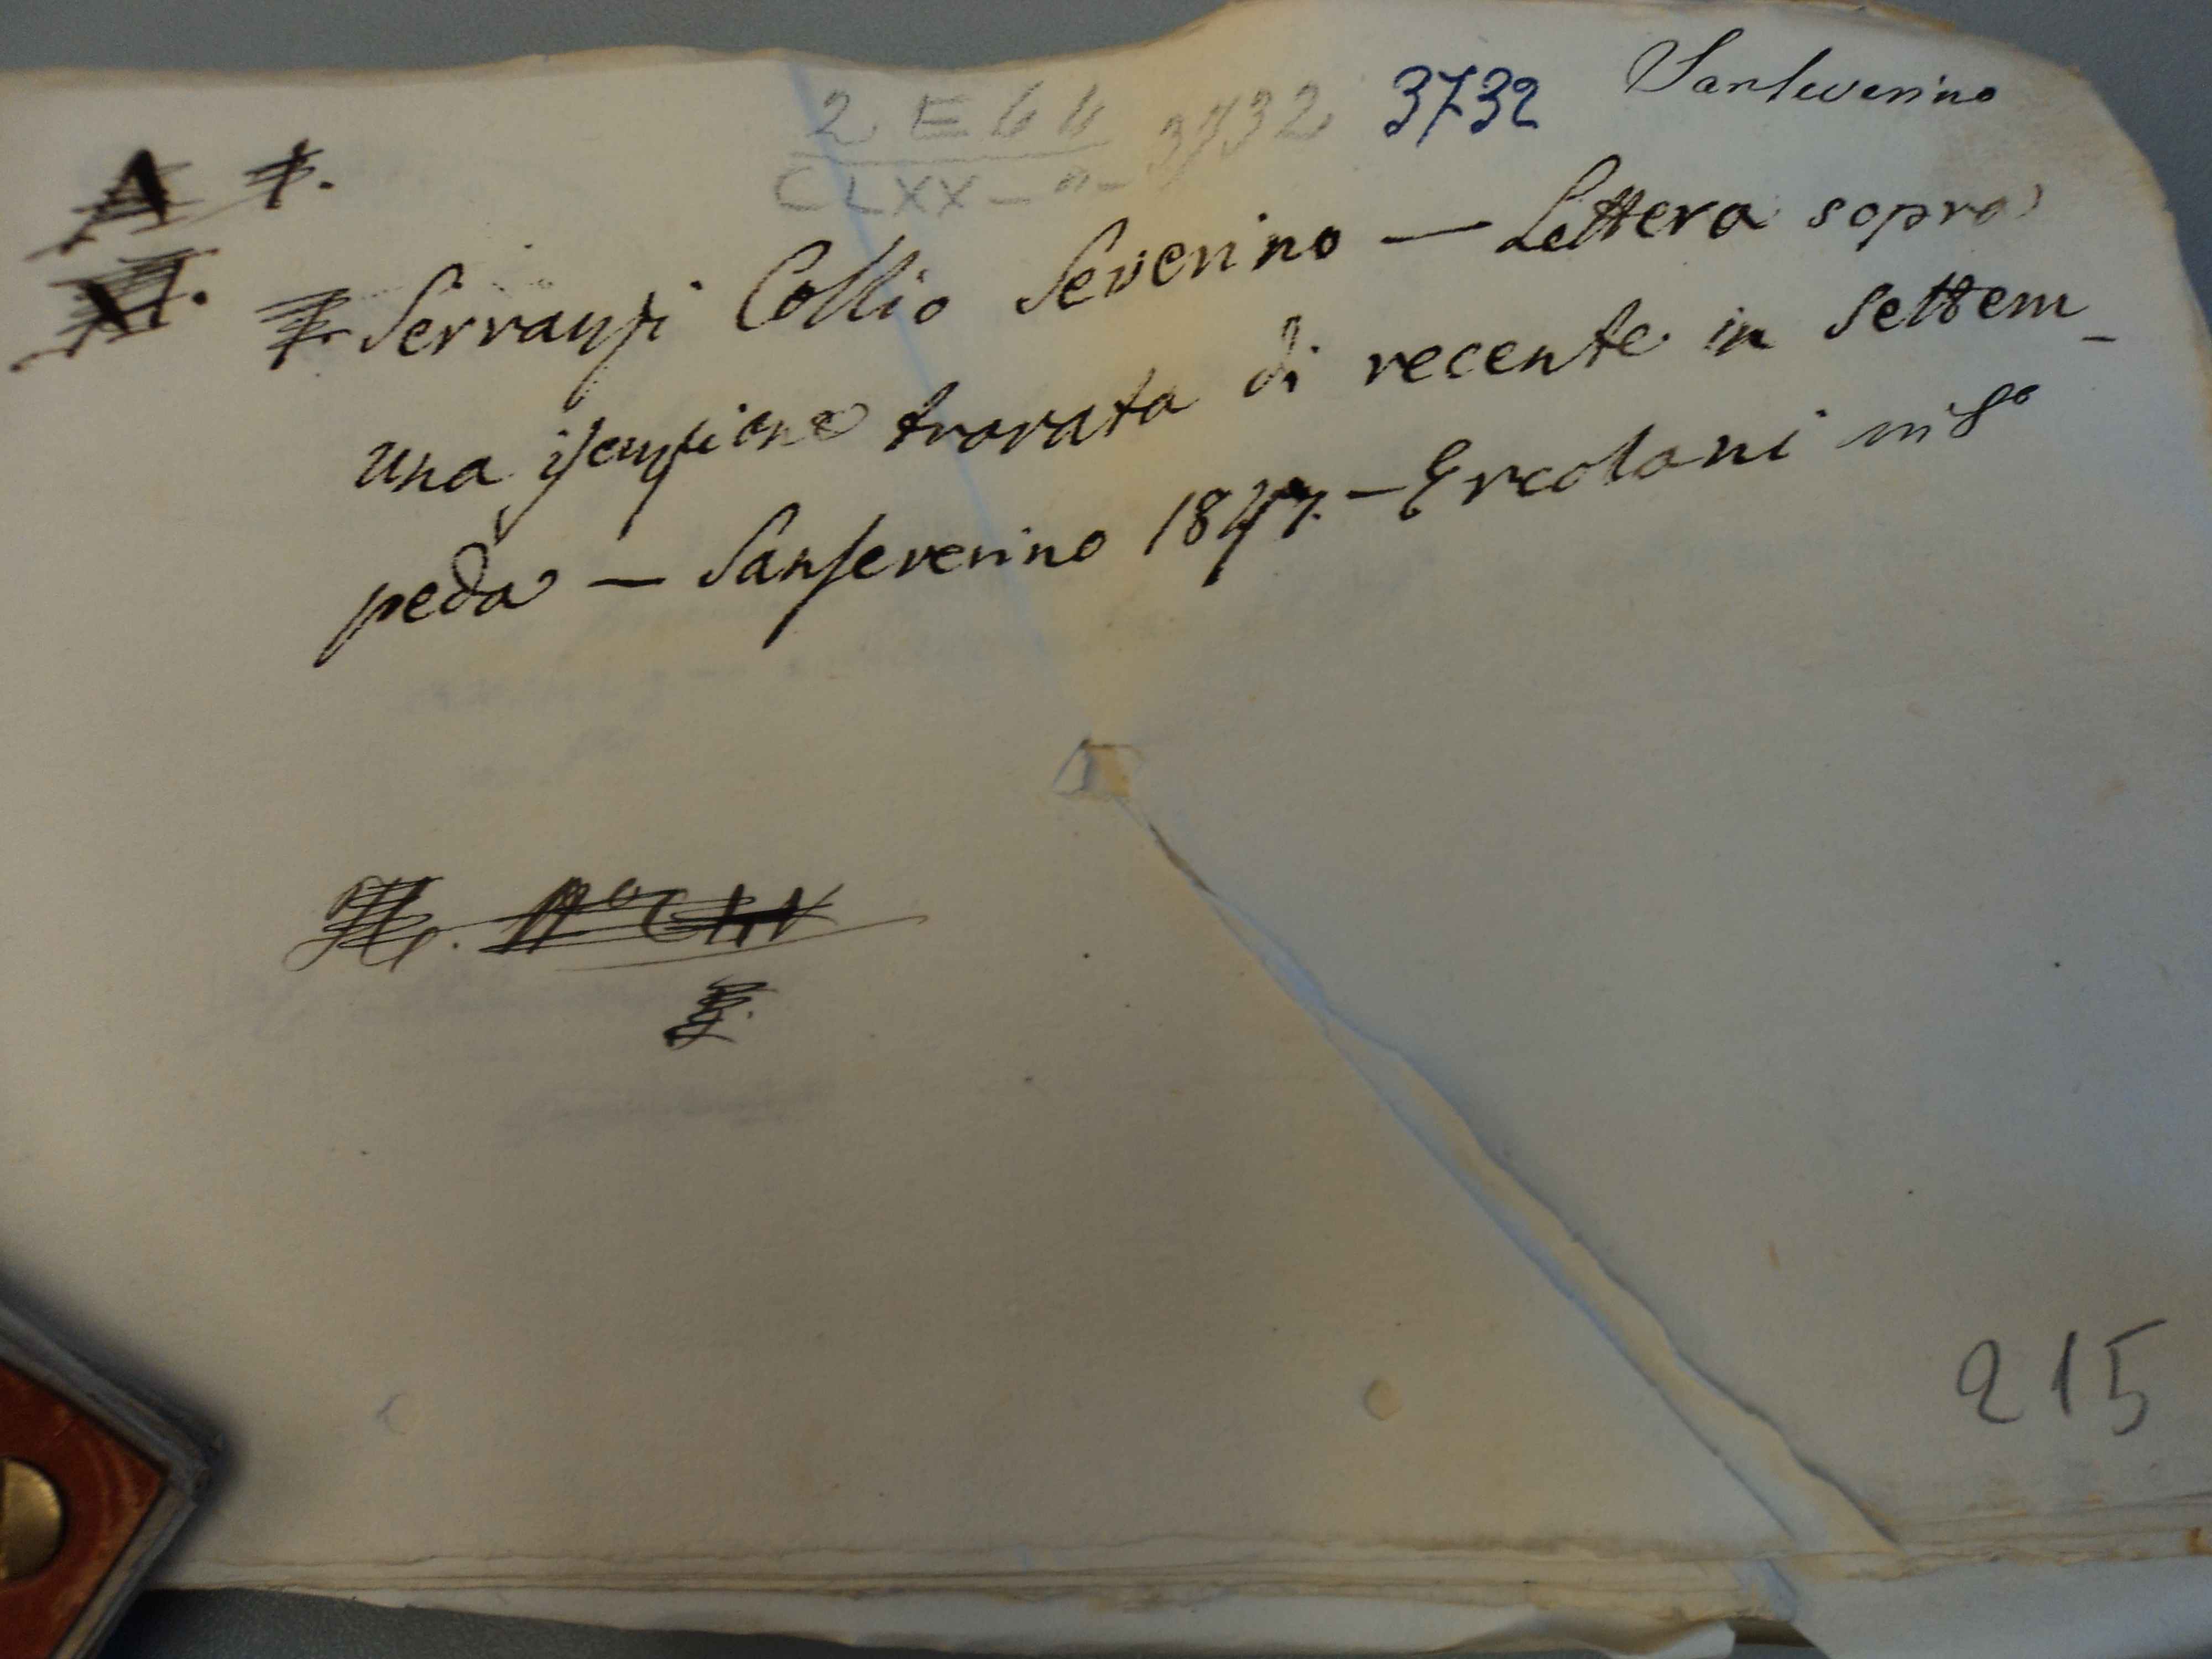 2 E 44 3732 3732 Sanseverino
CLXX - n -
A 1.
Servanzi Collio Severino — Lettera sopra
una iscrizione trovata di recente in Settem_
peda — Sanseverino 1847. — Ercolani in 8º
215